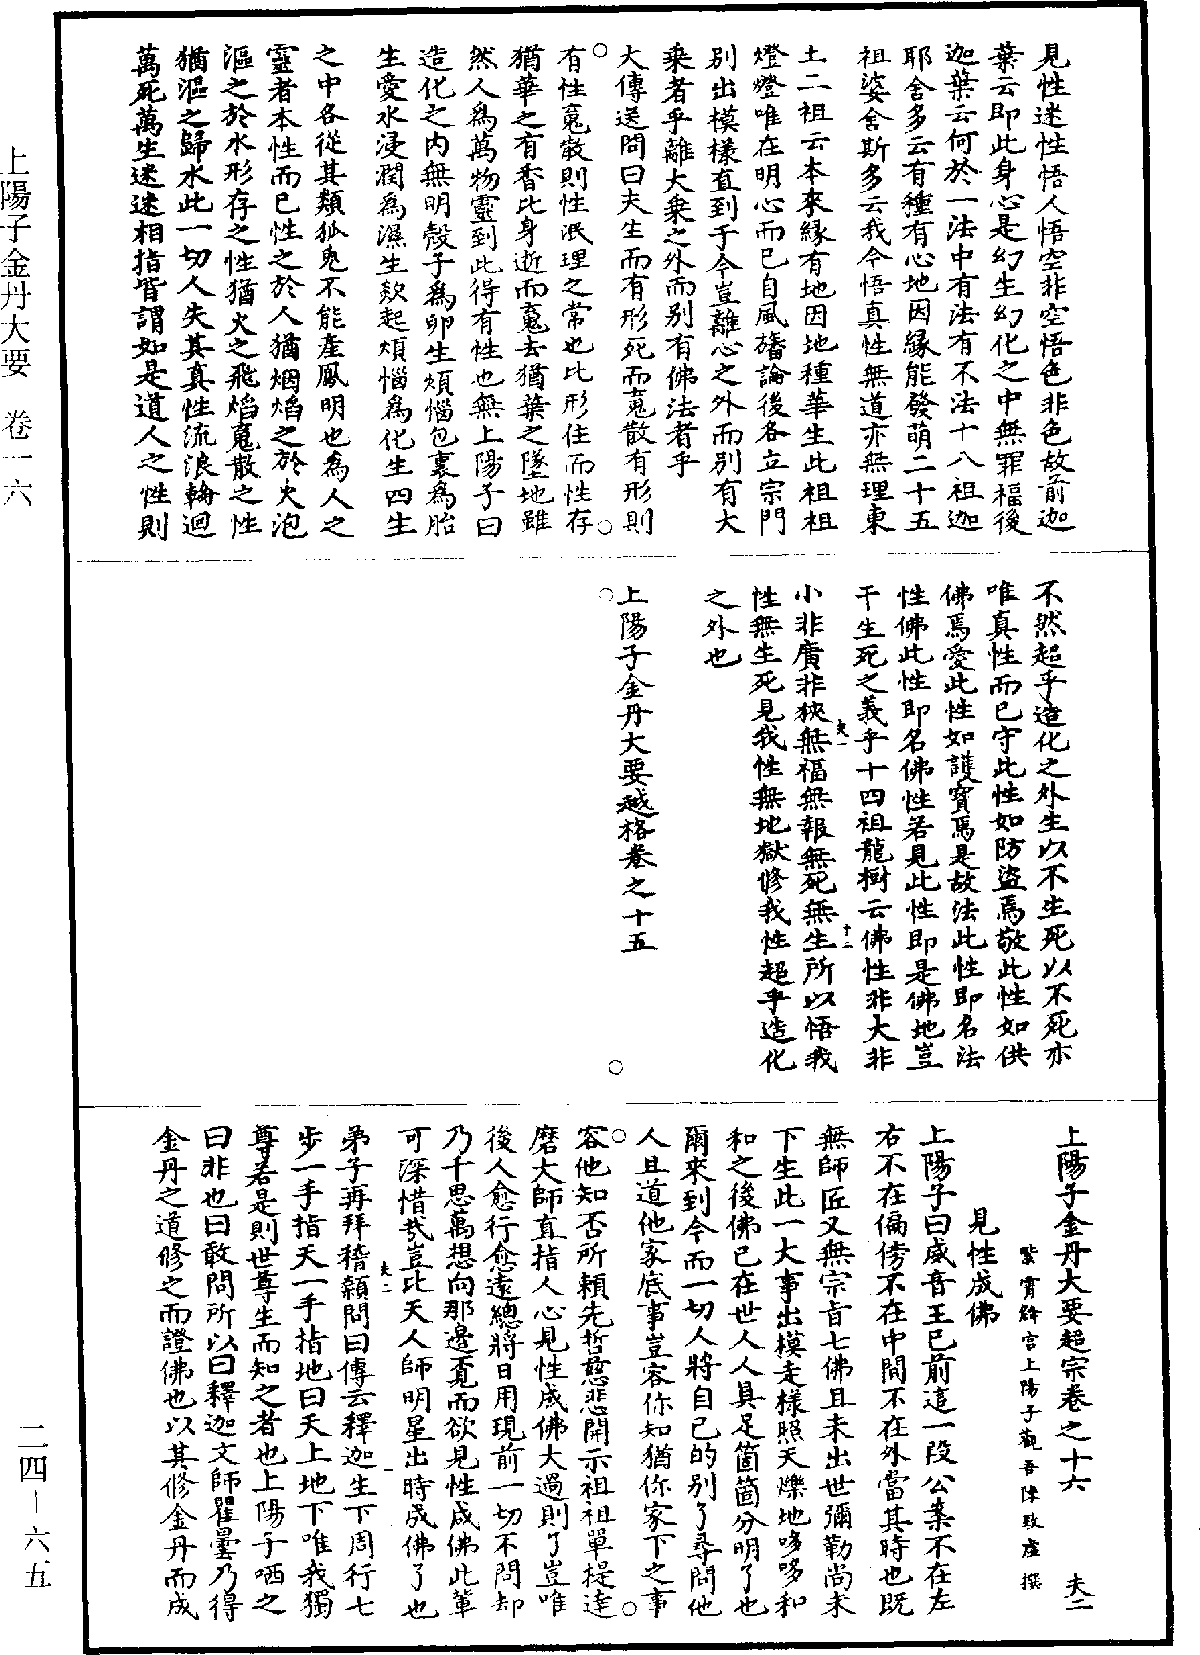 見性迷性悟人悟空非空悟色非色故前迦
葉云即此身心是幻生幻化之中無罪福後
迦葉云何於一法中有法有不法十八祖迦
耶舍多云有種有心地因緣能發萌二十五
祖婆舍斯多云我今悟真性無道亦無理東
土二祖云本來緣有地因地種華生此祖祖
燈燈唯在明心而已自風旛論後各立宗門
別出模樣直到于今豈離心之外而別有大
乗者乎離大乗之外而別有佛法者乎
大傳送問曰夫生而有形死而䰟散有形則
有性䰟散則性泯理之常也比形住而性存
猶華之有香比身逝而䰟去猶葉之墜地雖
然人爲萬物靈到此得有性也無上陽子曰
造化之内無明殼子爲卵生煩惱包裹爲胎
生愛水浸潤爲濕生欻起煩惱爲化生四生
之中各從其類狐兔不能產鳳明也爲人之
靈者本性而已性之於人猶烟焰之於火泡
漚之於水形存之性猶火之飛焰䰟散之性
猶漚之歸水此一切人失其真性流浪輪迴
萬死萬生迷迷相指皆謂如是道人之性則
不然超乎造化之外生以不生死以不死亦
唯真性而已守此性如防盜焉敬此性如供
佛焉愛此性如護寶焉是故法此性即名法
性佛此性即名佛性若見此性即是佛地豈
干生死之義乎十四祖龍樹云佛性非大非
小非廣非狹無福無報無死無生所以悟我
性無生死見我性無地獄修我性超乎造化
之外也
上陽子金丹大要越格卷之十五
上陽子金丹大要超宗卷之十六 夫二
紫霄絳宮上陽子觀吾陳致虛 撰
見性成佛
上陽子曰威音王已前這一段公案不在左
右不在偏傍不在中間不在外當其時也既
無師匠又無宗旨七佛且未出世彌勒尚未
下生此一大事出模走樣照天爍地哆哆和
和之後佛已在世人人具足箇箇分明了也
爾來到今而一切人將自己的別了尋問他
人且道他家底事豈容你知猶你家下之事
容他知否所賴先哲慈悲開示祖祖單提達
磨大師直指人心見性成佛大過則了豈唯
後人愈行愈遠總將日用現前一切不問却
乃千思萬想向那邊覔而欲見性成佛此輩
可深惜哉豈比天人師明星出時成佛了也
弟子再拜稽顙問曰傳云釋迦生下周行七
步一手指天一手指地曰天上地下唯我獨
尊若是則世尊生而知之者也上陽子哂之
曰非也曰敢問所以曰釋迦文師瞿曇乃得
金丹之道修之而證佛也以其修金丹而成
夫一
十二
夫二
一
上陽子金丹大要 卷一六
二四－六五